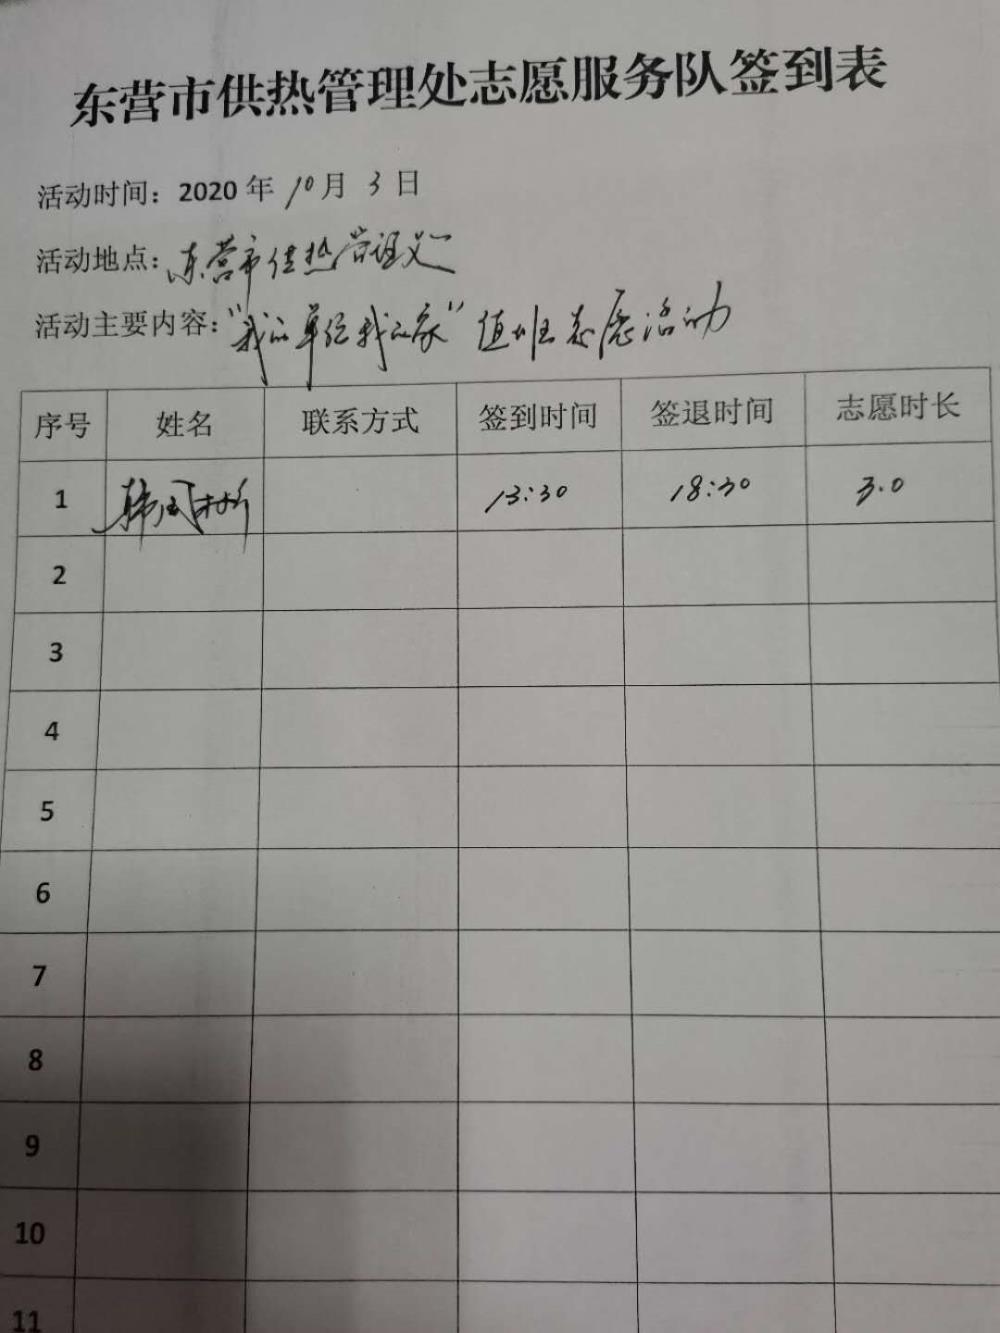 东营市供热管理处志愿服务队签到表
活动时间：2020 年 10 月 3 日
活动地点：东营市供热管理处
活动主要内容：“我的单位我的家”值班志愿活动
序号 姓名 联系方式 签到时间 签退时间 志愿时长
1 韩 彬 13:30 18:30 3.0
2
3
4
5
6
7
8
9
10
11